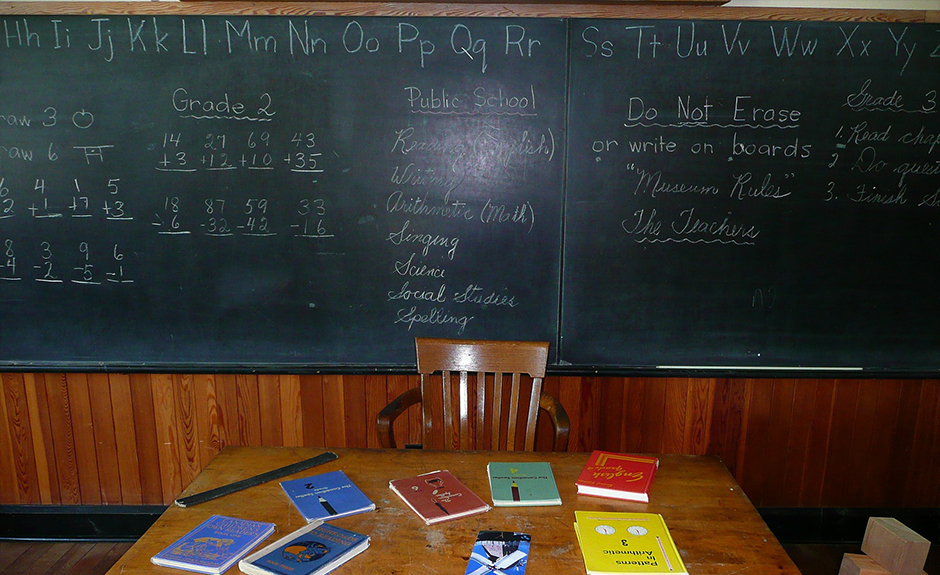 Hh Ii Jj Kk Ll Mm Nn Oo Pp Qq Rr Ss Tt Uu Vv Ww Xx Yy
3
6
4 1 5
+1 +7 +3
8 3 9 6
-2 -5 -1
Grade 2
14 27 69 43
+3 +12 +10 +35
18 87 59 33
-6 -32 -42 -16
Public School
Reading (English)
Writing
Arithmetic (Math)
Singing
Science
Social Studies
Spelling
Do Not Erase
or write on boards
"Museum Rules"
The Teachers
Grade 3
1. Read
2 Do
3. Finish
The Canadian Speller
The Canadian Speller
4
English
Patterns
In
Arithmetic
3